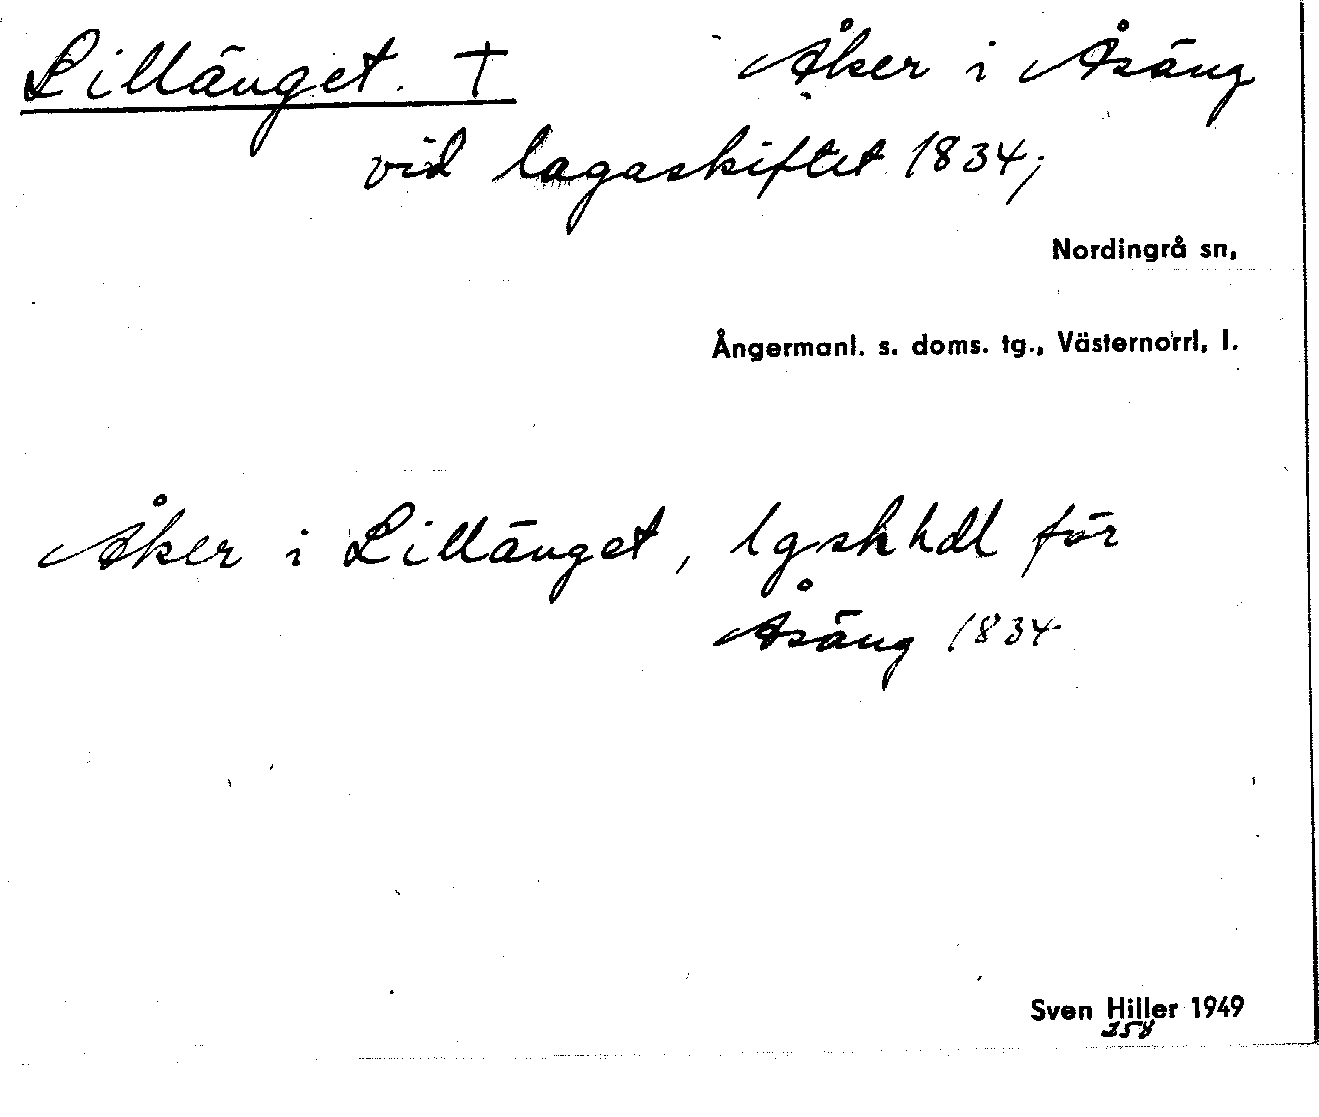 Lillänget. † Åker i Åsäng
vid lagaskiftet 1834;
Nordingrå sn,
Ångermanl. s. doms. tg., Västernorrl. l.
Åker i Lillänget, lgskhdl för
Åsäng 1834
Sven Hiller 1949
258